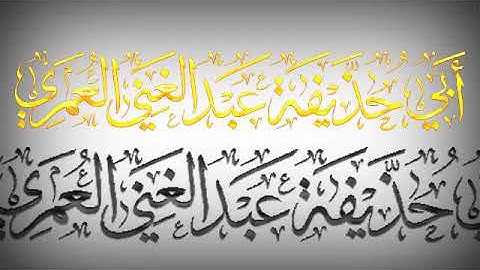 أَبِي حُذَيْفَة عَبْدالغَنِي العُمَرِي
حُذَيْفَة عَبْدالغَنِي العُمَرِي